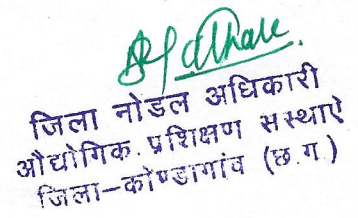 जिला नोडल अधिकारी
औद्योगिक प्रशिक्षण संस्थाऐ
जिला-कोण्डागांव (छ.ग.)